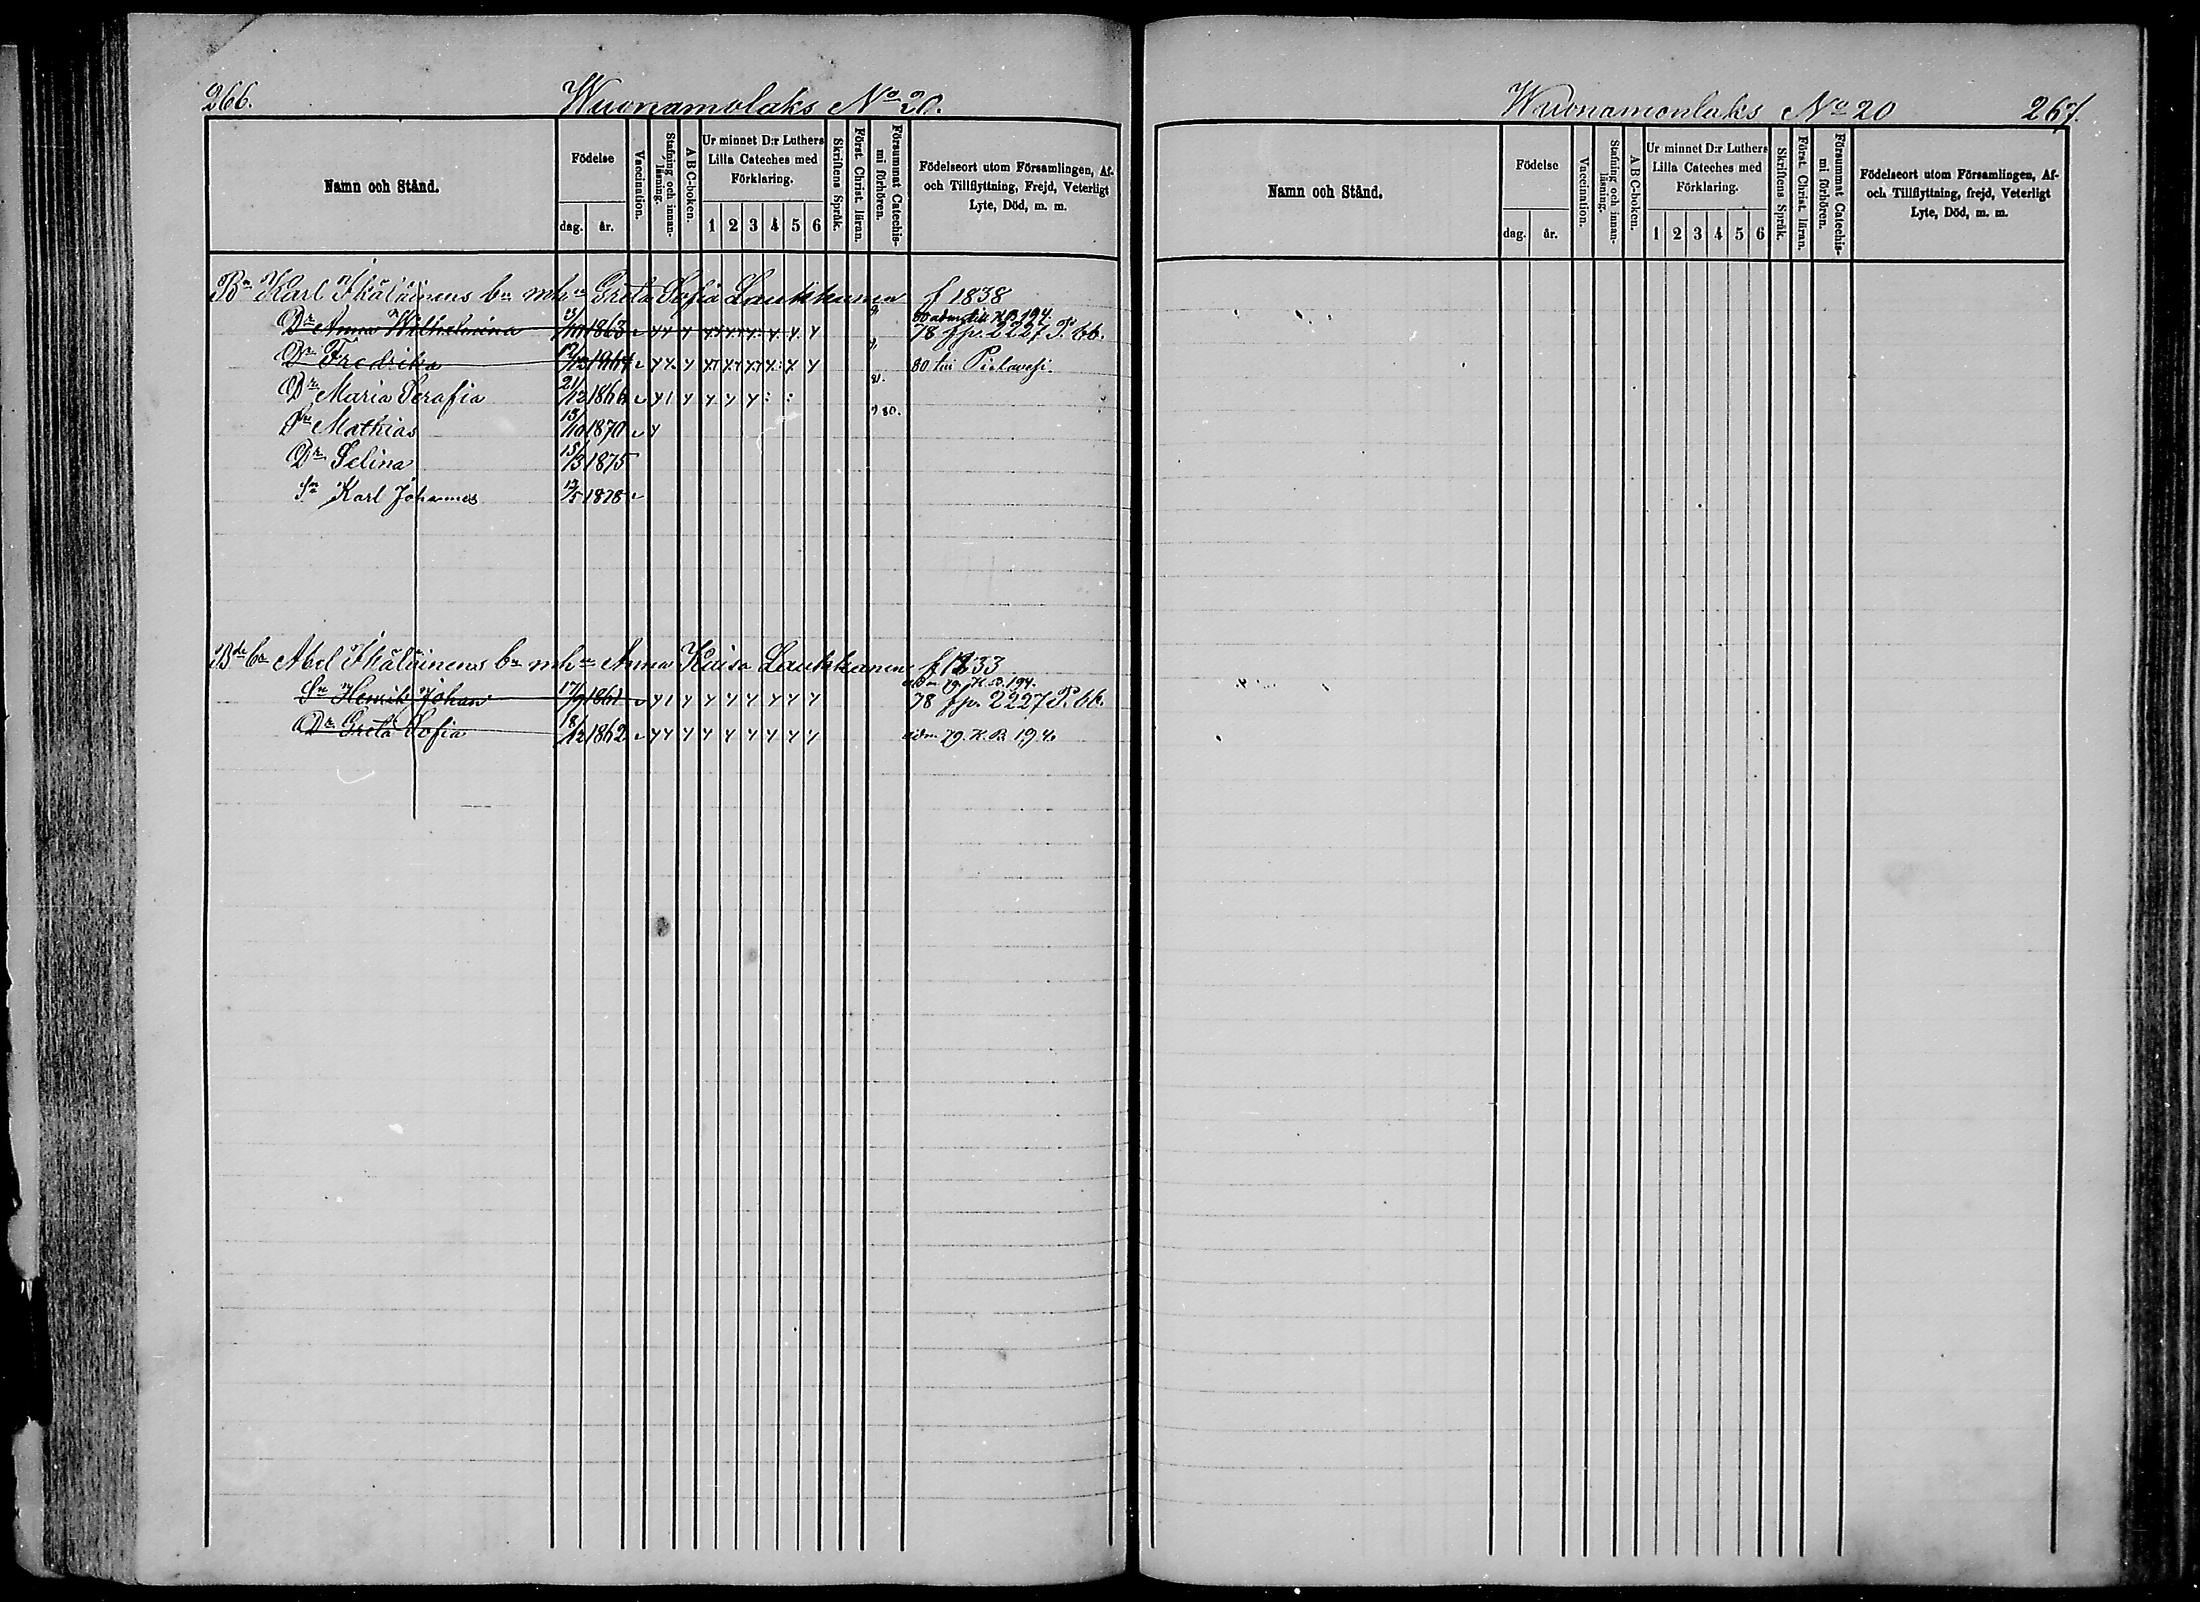 266. Wuonamolaks No 20.
Namn och Stånd.
Födelse
dag. år.
Vaccination.
Stafning och innanläsning.
A B C-boken.
Ur minnet D:r Luthers Lilla Cateches med Förklaring.
1 2 3 4 5 6
Skriftens Språk.
Först. Christ. läran.
Försummat Catechismi förhören.
Födelseort utom Församlingen, Af- och Tillflyttning, Frejd, Veterligt Lyte, Död, m. m.
Bn Karl Ikäläinens bn mhn Greta Sofia Laukkanen f 1838
80 adm. till K.B. 194.
Dr Anna Wilhelmina 1863 78 2227 P. bb.
Dr Fredrika 80 till Pielavesi.
Dr Maria Serafia 21/12 1866 81.
Sn Mathias 13/10 1870 80.
Dr Selina 15/3 1875
Sn Karl Johannes 12/5 1878
Abel Ikäläinens bn mhn Anna Kaisa Laukkanen f 1833
79. K.B. 194.
Sn Henrik Johan 17/9 1861 78 2227 P. bb.
Dr Greta Sofia 18/12 1862 adm 79. K.B. 194.
Wuonamonlaks No 20 267.
Namn och Stånd.
Födelse
dag. år.
Vaccination.
Stafning och innanläsning.
A B C-boken.
Ur minnet D:r Luthers Lilla Cateches med Förklaring.
1 2 3 4 5 6
Skriftens Språk.
Först. Christ. läran.
Försummat Catechismi förhören.
Födelseort utom Församlingen, Af- och Tillflyttning, frejd, Veterligt Lyte, Död, m. m.